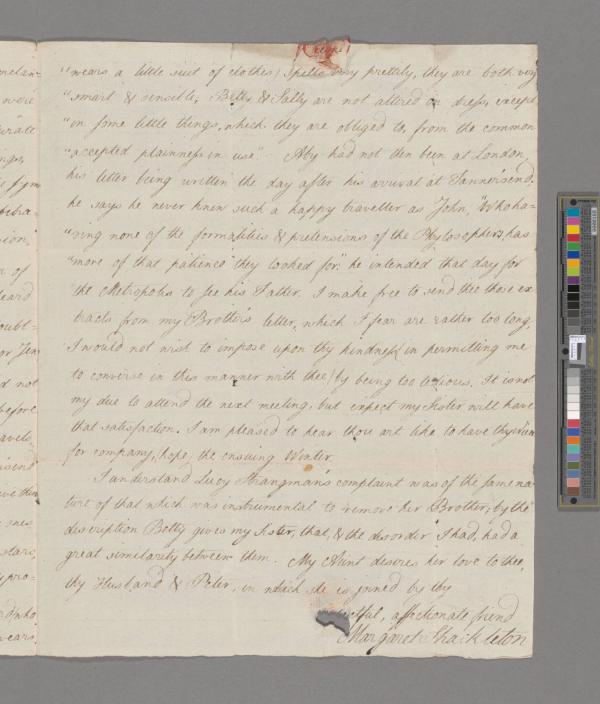 "wears a little suit of clothes, spells very prettily, they are both very
"smart & sensible, Betty & Sally are not altered in dress, except
"in some little things, which they are obliged to, from the common
"accepted plainness in use". Aby had not then been at London,
his letter being written the day after his arrival at Tanner'send.
he says he never knew such a happy traveller as John, "Who ha=
"ving none of the formalities & pretensions of the Phylosophers has
"more of that patience they looked for." he intended that day for
the Metropolis to see his Father. I make free to send thee these ex
tracts from my Brother's letter, which I fear are rather too long.
I would not wish to impose upon thy kindness (in permitting me
to converse in this manner with thee) by being too tedious. It is not
my due to attend the next meeting, but expect my Sister will have
that satisfaction. I am pleased to hear thou art like to have thy
for company, I hope, the ensuing Winter.
I understand Lucy Strangman's complaint was of the same na=
ture of that which was instrumental to remove her Brother, by the
discription Betty gives my Sister, that, & the disorder I had, had a
great similarity between them. My Aunt desires her love to thee,
thy Husband & Peter, in which she is joined by thy
ctful, affectionate friend
Margaret Shackleton
melan-
were
of
heard
doubt=
not
before
travels
says
pro=
who
wears